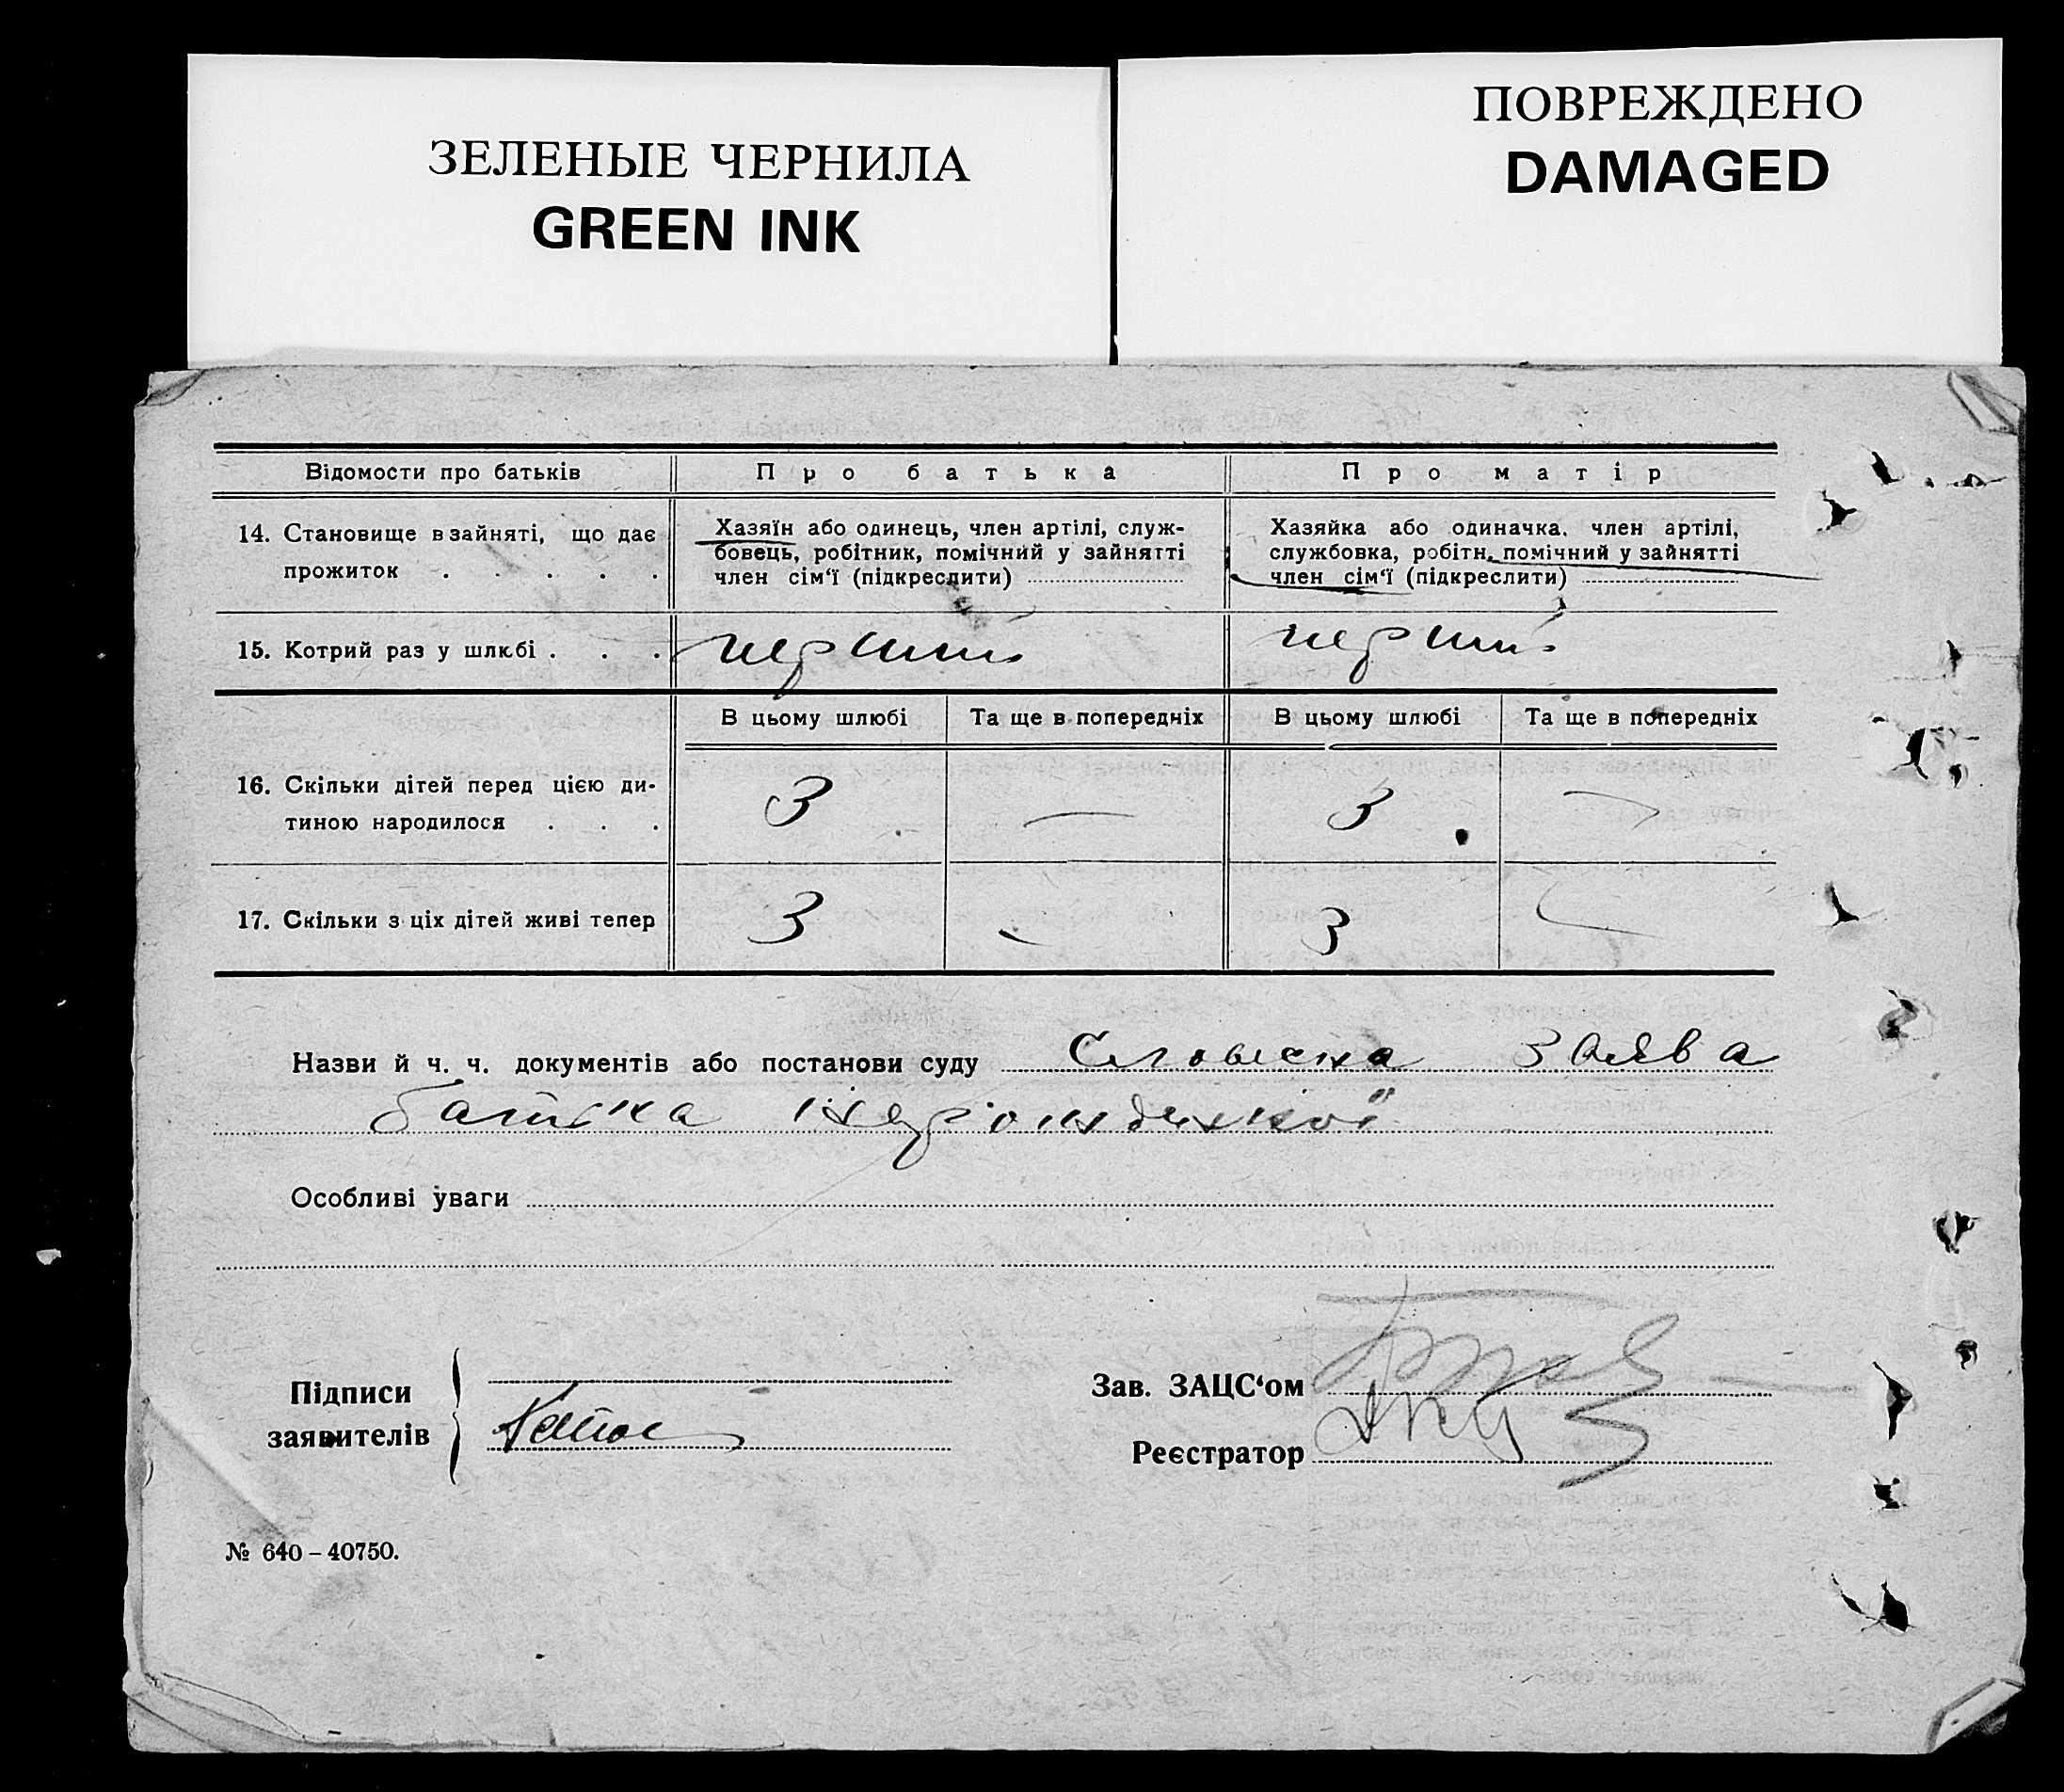 ЗЕЛЕНЫЕ ЧЕРНИЛА
GREEN INK
ПОВРЕЖДЕНО
DAMAGED
Відомости про батьків Про батька Про матір
14. Становище в зайняті, що дає прожиток . . . . .
Хазяїн або одинець, член артілі, служ-
бовець, робітник, помічний у зайнятті
член сім‘ї (підкреслити)
Хазяйка або одиначка. член артілі,
службовка, робітн. помічний у зайнятті
член сім‘ї (підкреслити)
15. Котрий раз у шлюбі . . . перший перший
В цьому шлюбі Та ще в попередніх В цьому шлюбі Та ще в попередніх
16. Скільки дітей перед цією ди-
тиною народилося . . . 3 — 3 —
17. Скільки з ціх дітей живі тепер 3 - 3 -
Назви й ч. ч. документів або постанови суду Словесна заява
батька
Особливі уваги
Підписи
заявителів
Зав. ЗАЦС‘ом
Реєстратор
№ 640 – 40750.